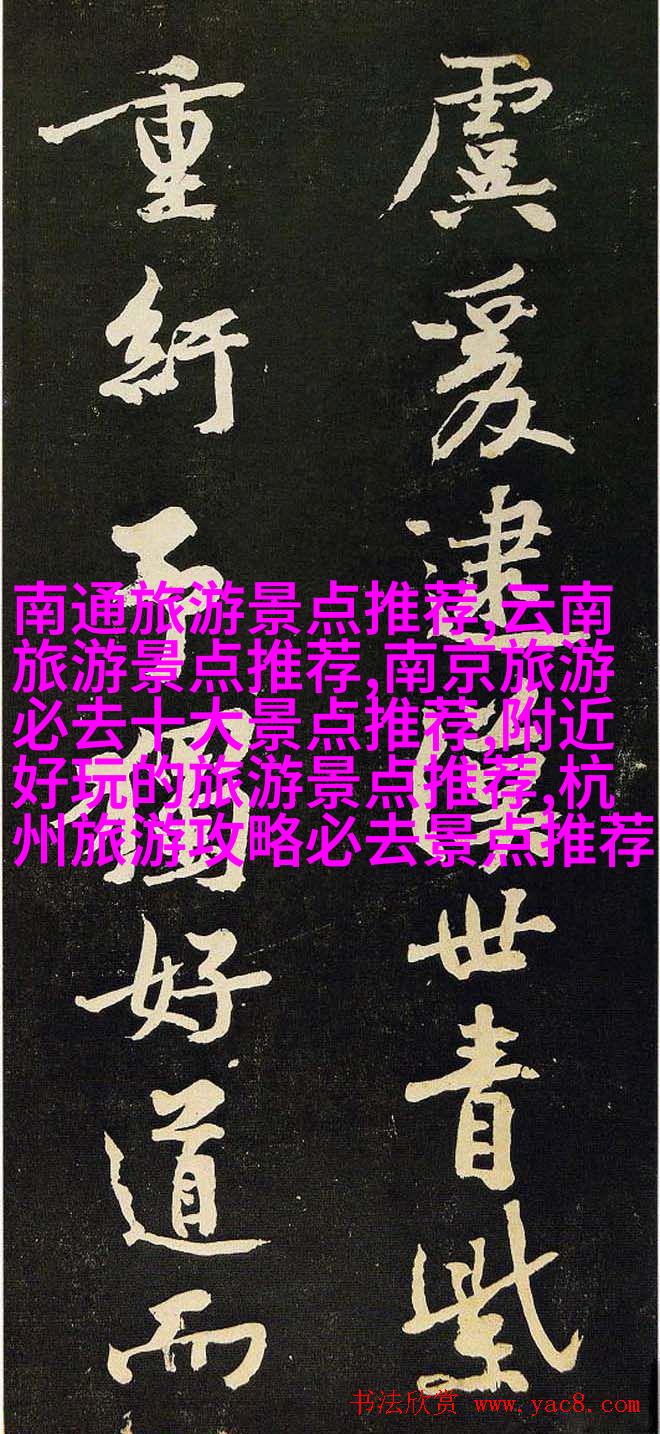 虞爰逮世青紫
重紆予獨好道而
南通旅游景点推荐,云南
旅游景点推荐,南京旅游
必去十大景点推荐,附近
好玩的旅游景点推荐,杭
州旅游攻略必去景点推荐
书法欣赏 www.yac8.com